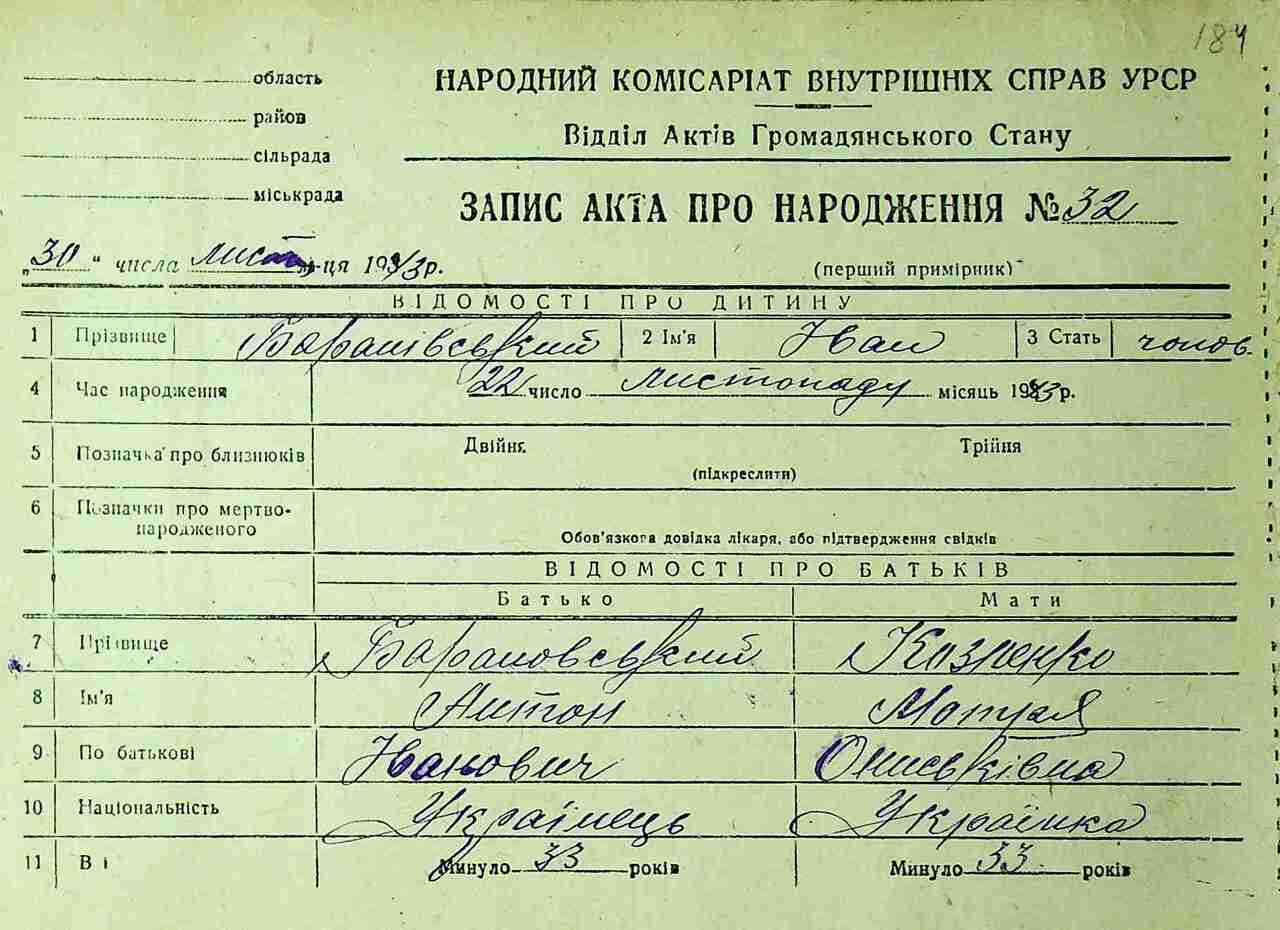 184
область
районов
сільрада
міськрада
НАРОДНИЙ КОМІСАРІАТ ВНУТРІШНІХ СПРАВ УРСР
Відділ Актів Громадянського Стану
ЗАПИС АКТА ПРО НАРОДЖЕННЯ № 32
„30“ числа лист м-ця 1943 р.
(перший примірник)
ВІДОМОСТІ ПРО ДИТИНУ
1 Прізвище Баранівський 2 Ім'я Иван 3 Стать чолов.
4 Час народження 22 число листопаду місяць 1943 р.
5 Позначка про близнюків Двійня Трійня
(підкреслити)
6 Позначки про мертво-
народженого
Обов'язкова довідка лікаря, або підтвердження свідків
ВІДОМОСТІ ПРО БАТЬКІВ
Батько Мати
7 Прізвище Барановський Козненко
8 Ім'я Антон Мотря
9 По батькові Иванович Ониськівна
10 Національність Українець Українка
11 Ві Минуло 33 років Минуло 33 років